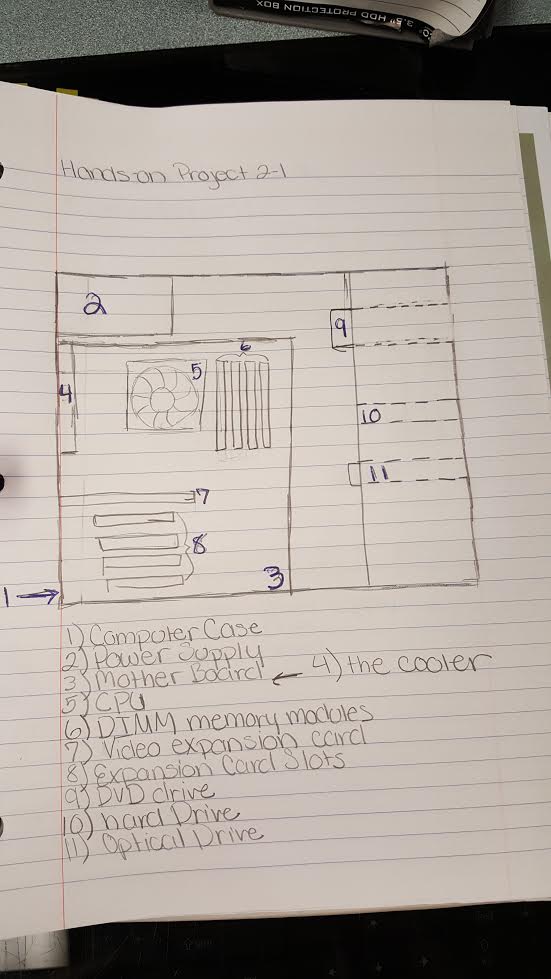 3.5" HDD PROTECTION BOX
Hands-on Project 2-1
2
9
6
5
4
10
11
7
8
3
1
1) Computer Case
2) Power Supply
3) Mother Board ← 4) the cooler
5) CPU
6) DIMM memory modules
7) Video expansion card
8) Expansion Card Slots
9) DVD drive
10) hard Drive
11) Optical Drive